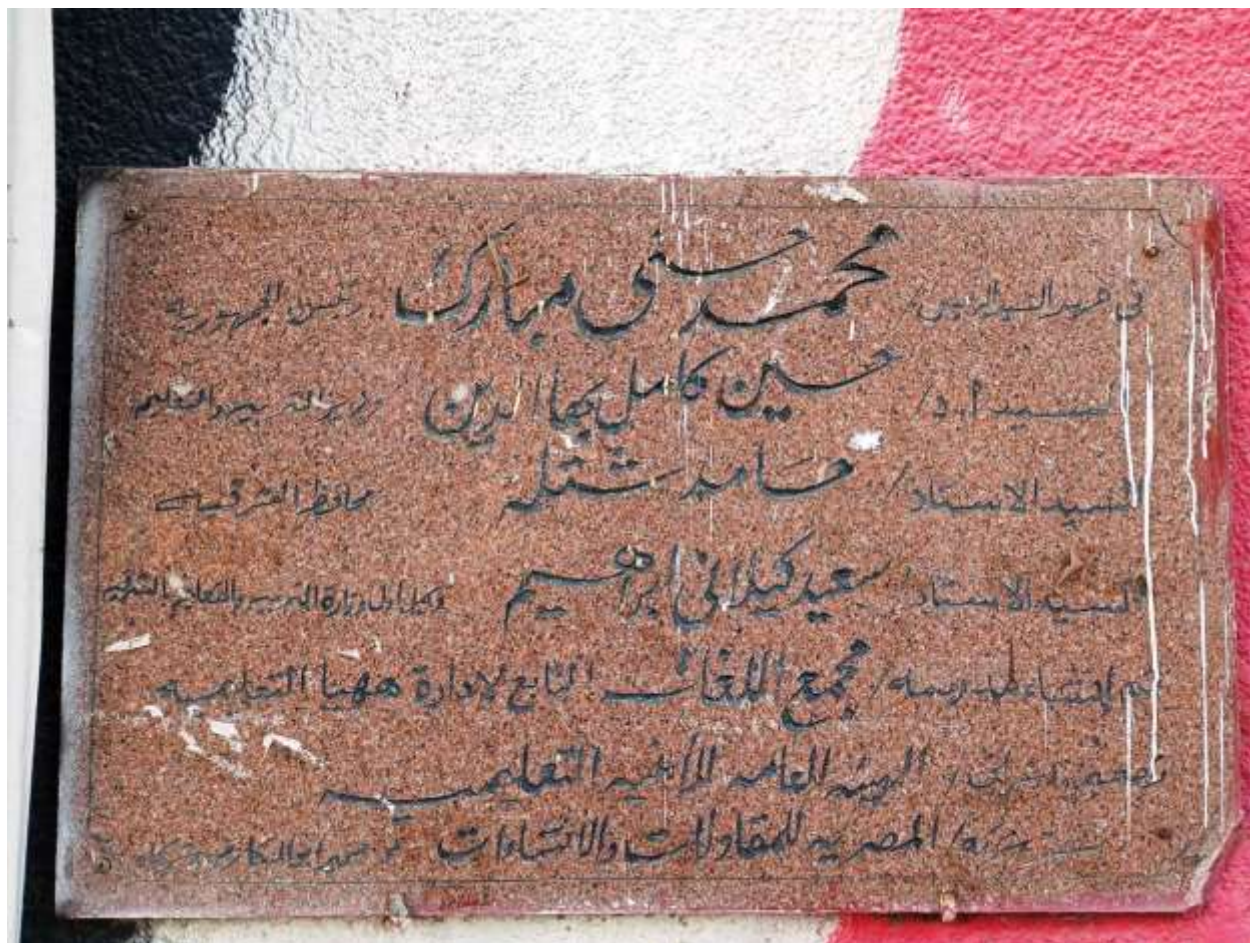 فى عهد السيد الرئيس / محمد حسنى مبارك رئيس الجمهورية
السيد أ.د / حسين كامل بهاء الدين وزير التربيه والتعليم
السيد الاستاذ / حامد شتله محافظ الشرقيه
السيد الاستاذ / سعيد كيلانى ابراهيم وكيل اول وزارة التربيه والتعليم بالشرقيه
تم إنشاء مدرسه / مجمع اللغات التابع لادارة ههيا التعليميه
تصميم واشراف / الهيئه العامه للأبنيه التعليميه
تنفيذ شركه / المصريه للمقاولات والانشاءات